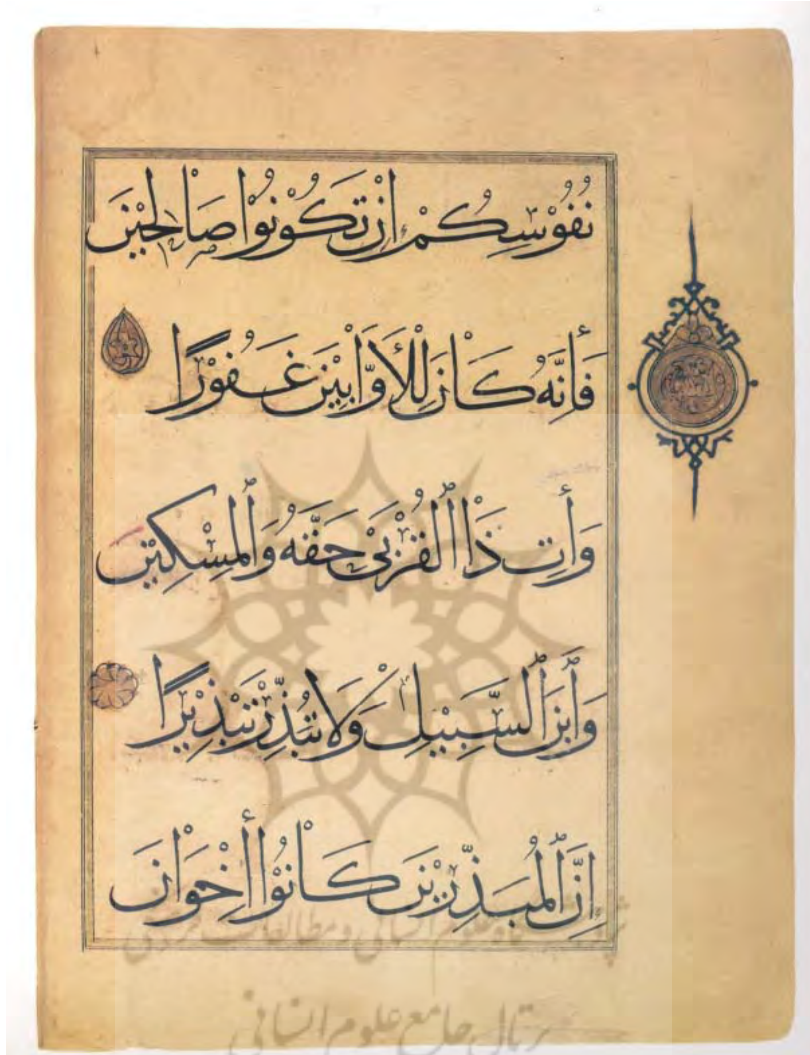 نُفُوْسِكُمْ اِنْ تَكُوْنُوْا صَالِحِيْنَ
فَأِنَّهُ كَانَ لِلْأَوَّابِيْنَ غَفُوْرًا
وَأٰتِ ذَا الْقُرْبٰى حَقَّهُ وَالْمِسْكِيْنَ
وَابْنَ السَّبِيْلِ وَلَا تُبَذِّرْ تَبْذِيْرًا
اِنَّ الْمُبَذِّرِيْنَ كَانُوْا أِخْوَانَ
علوم انسانی و مطالعات فرهنگی
رتال جامع علوم انسانی